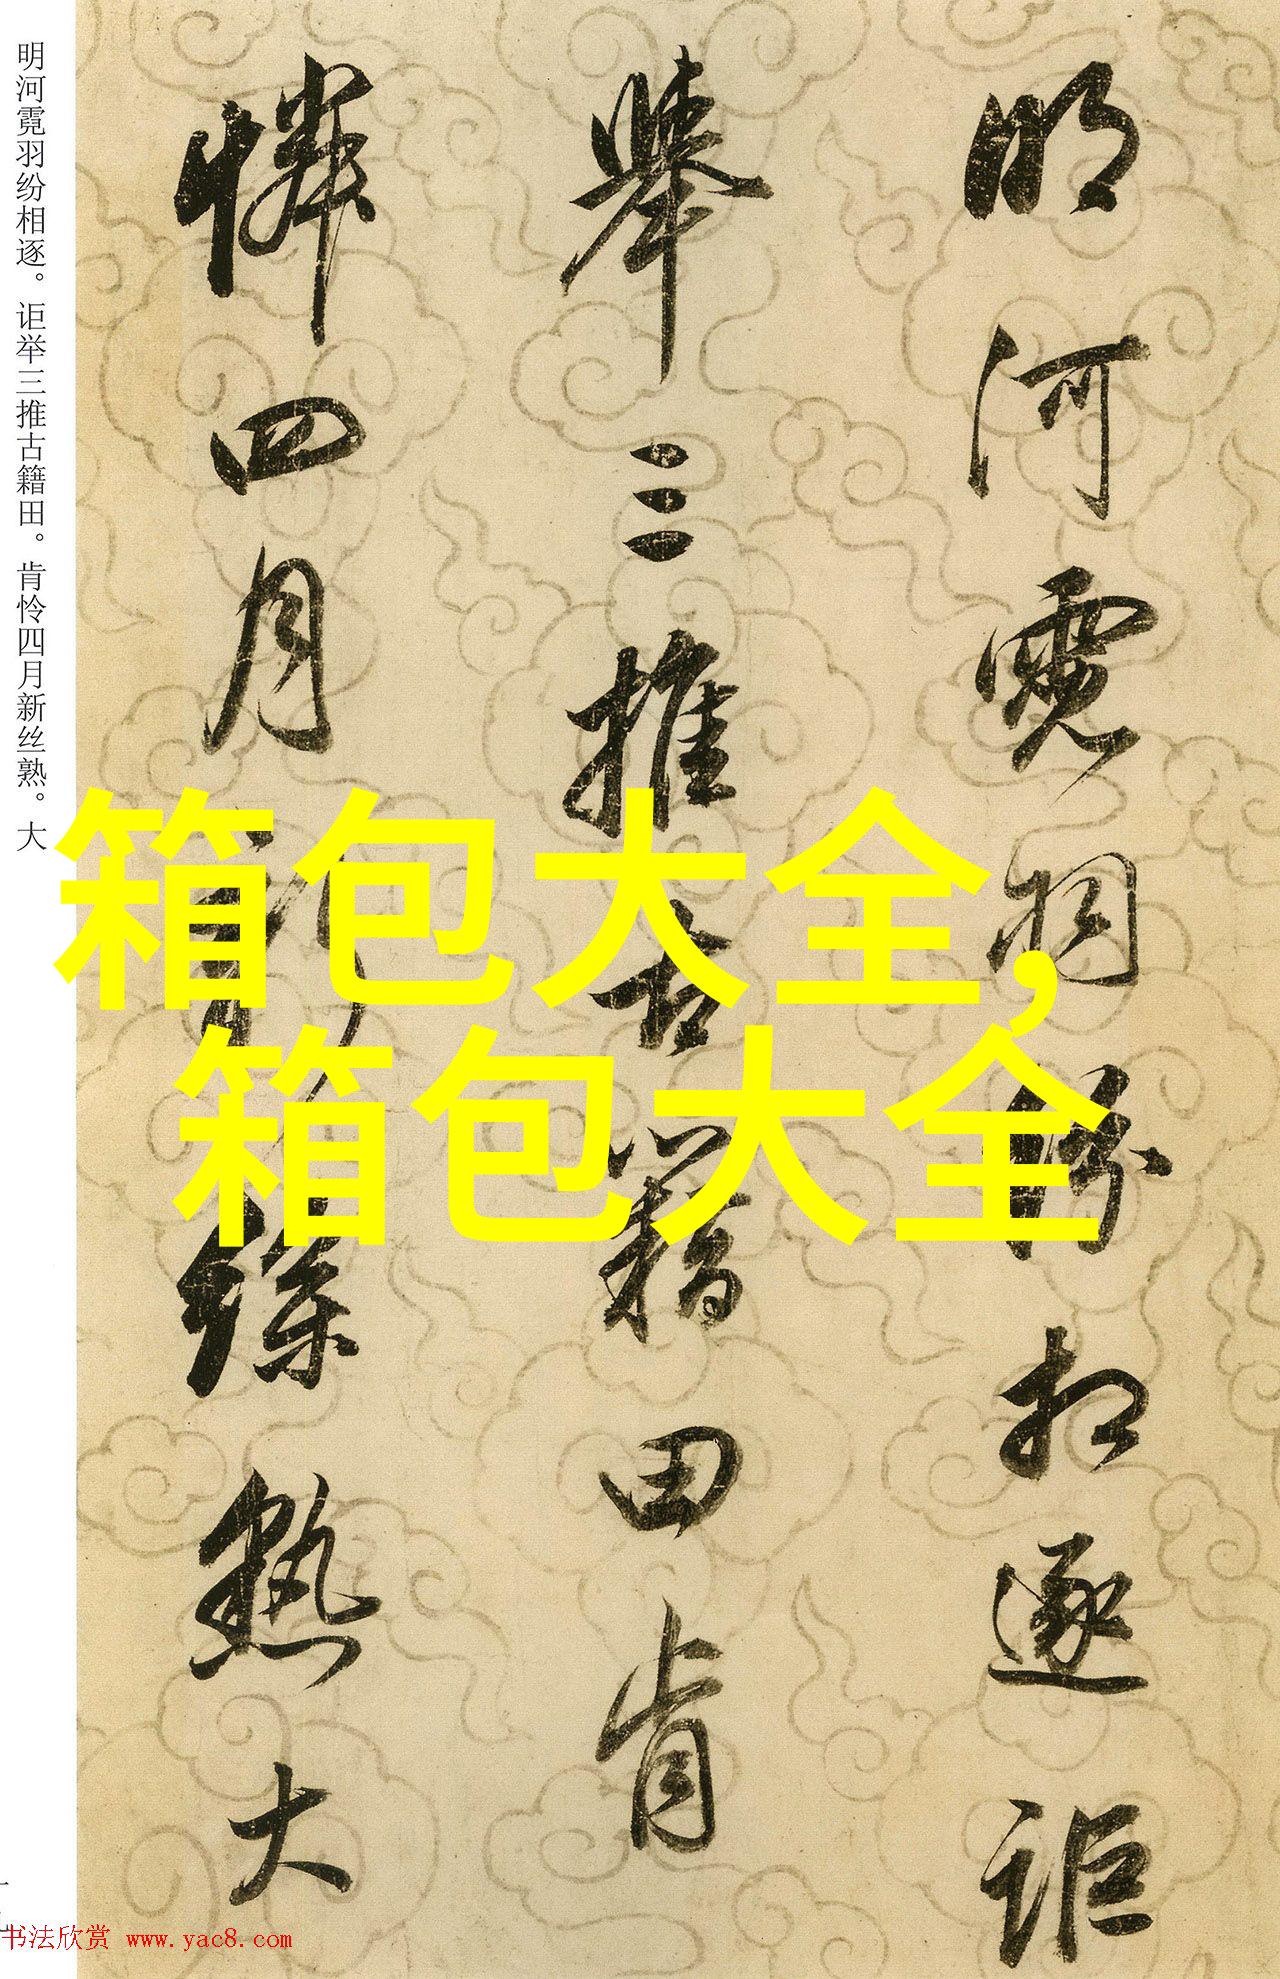 明河霓羽纷相逐。讵举三推古籍田。肯怜四月新丝熟。大
明河霓羽紛相逐詎
舉三推古籍田肯
憐四月新絲熟大
箱包大全,
箱包大全
书法欣赏 www.yac8.com